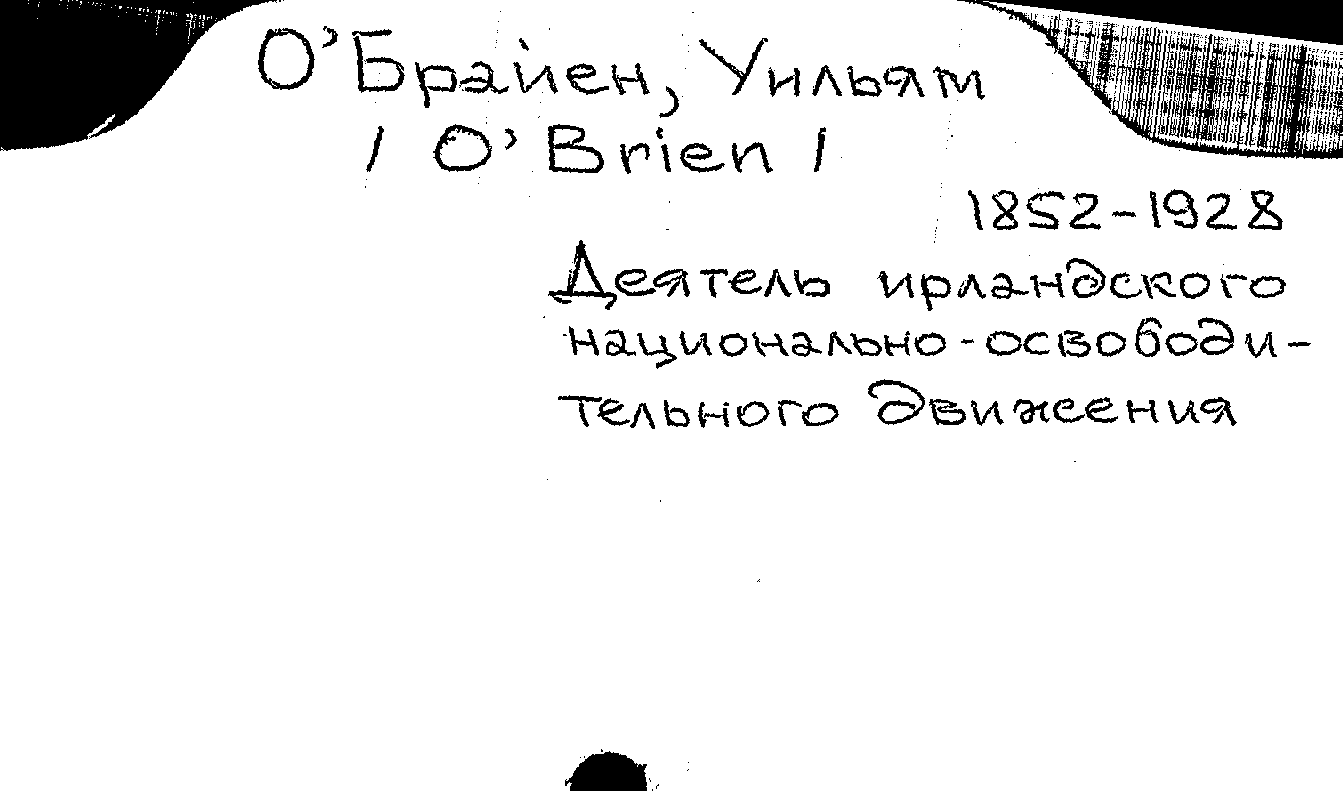 О’Брайен, Уильям
/ O’Brien /
1852-1928
Деятель ирландского
национально-освободи-
тельного движения